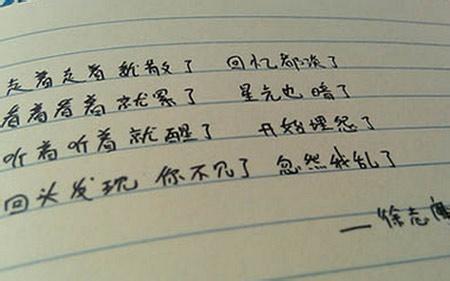 走着走着就散了 回忆都淡了
看着看着就累了 星光也暗了
听着听着就醒了 开始埋怨了
回头发现 你不见了 忽然我乱了
—徐志